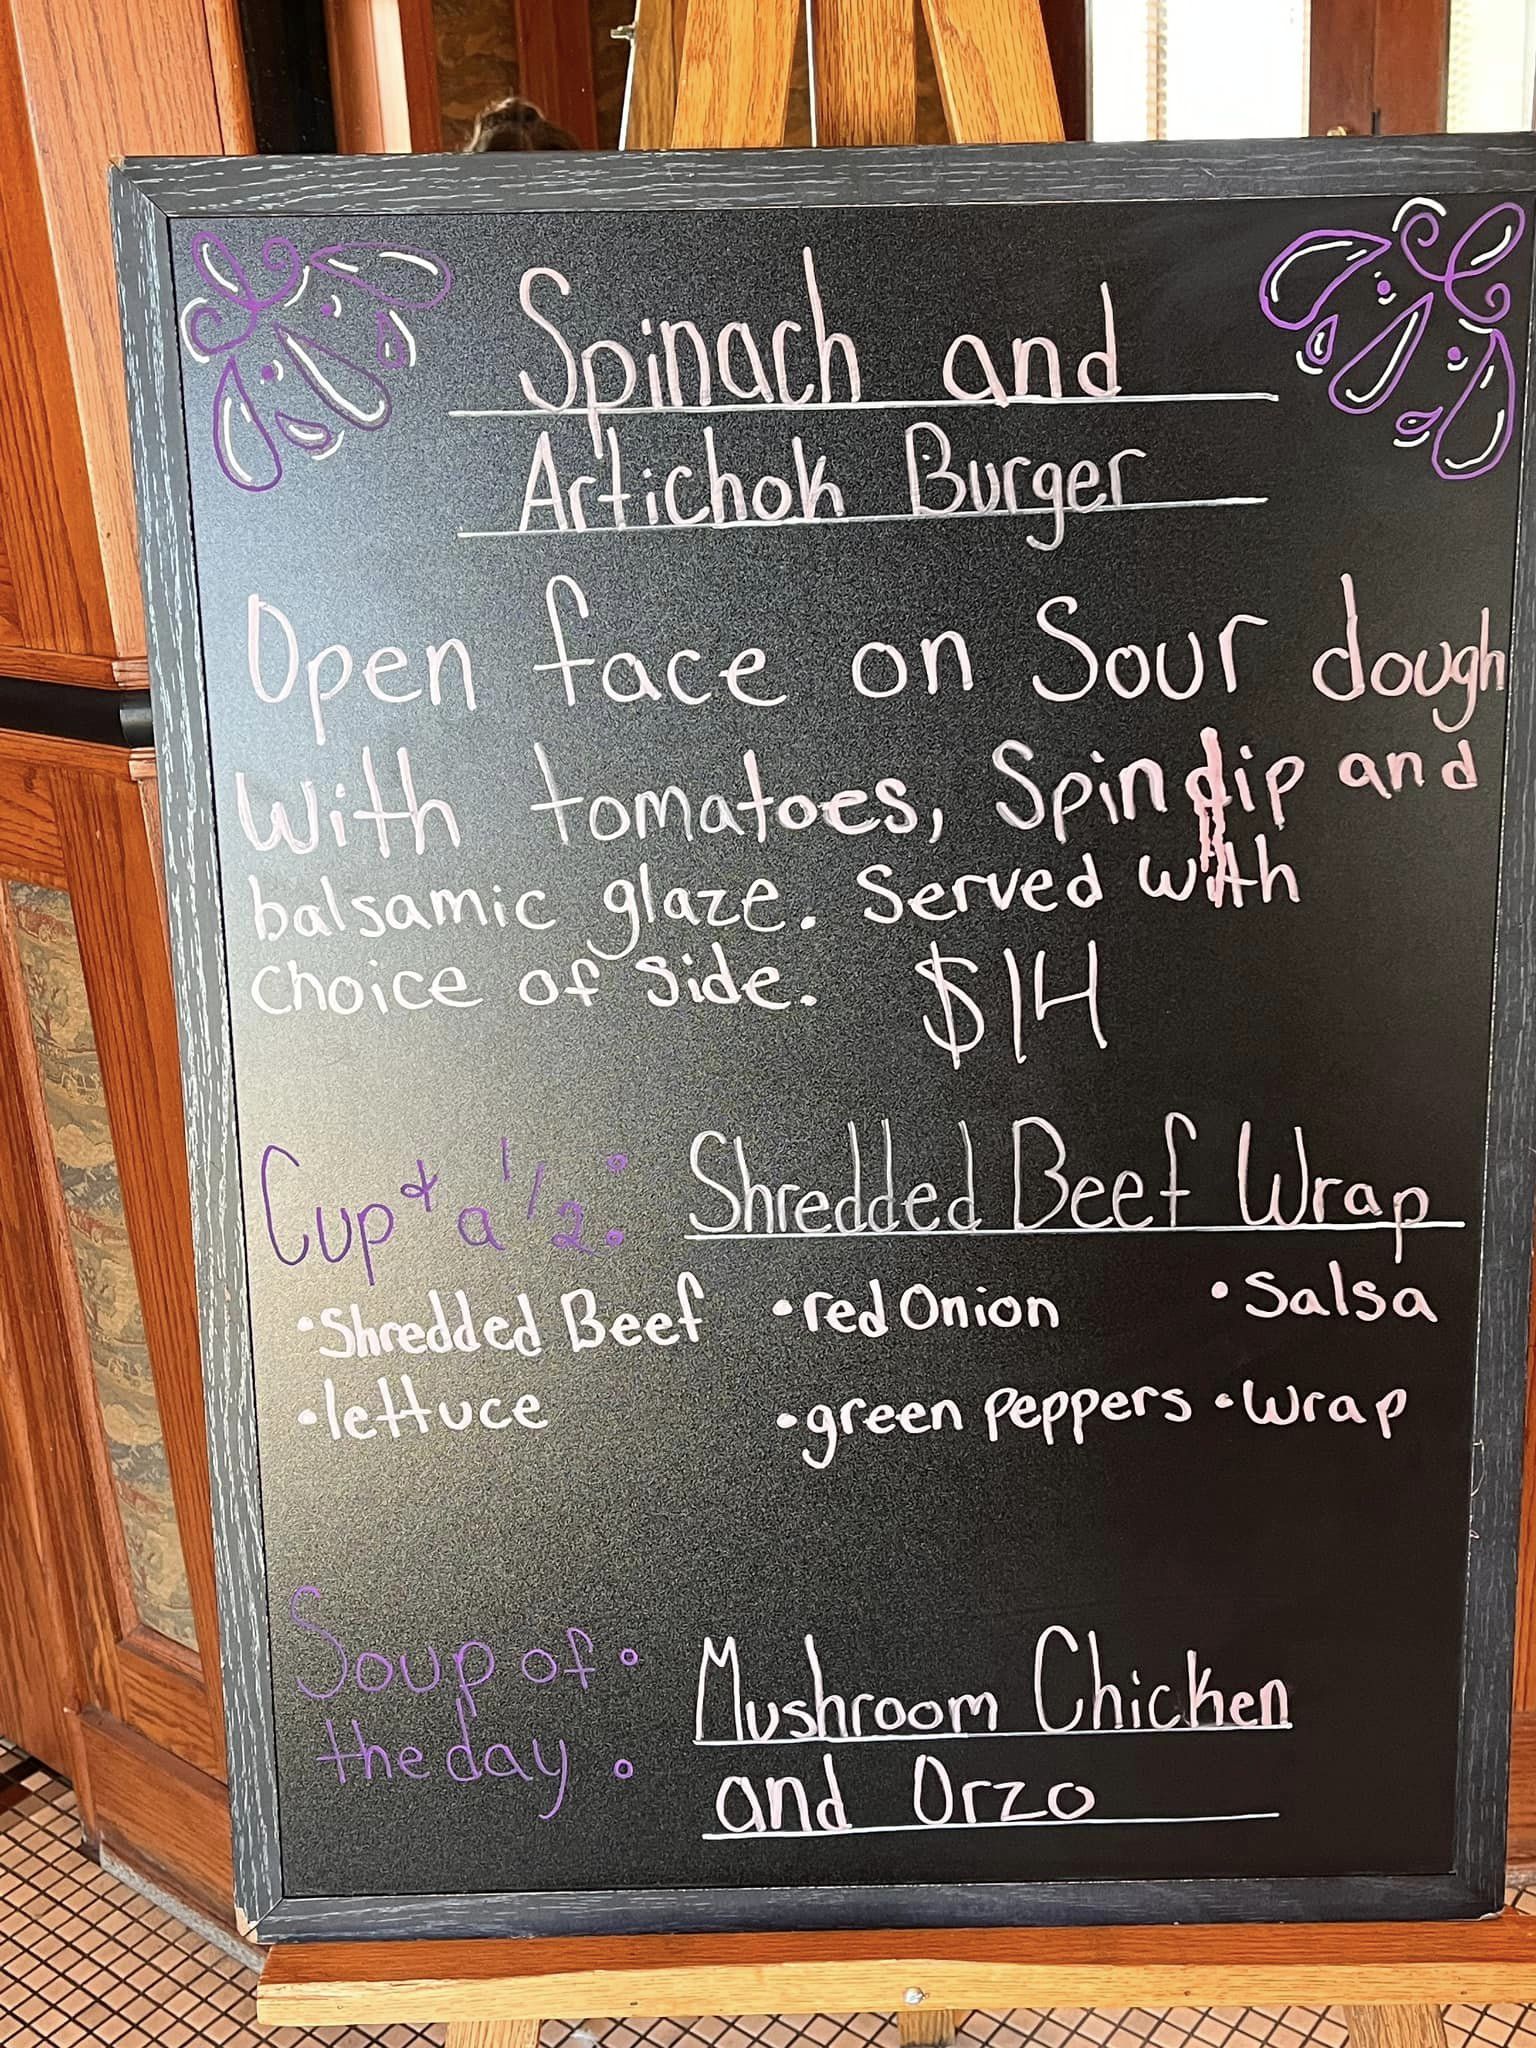 Spinach and
Artichok Burger
Open face on Sour dough
With tomatoes, Spin dip and
balsamic glaze. Served with
choice of side. $14
Cup & a 1/2: Shredded Beef Wrap
•Shredded Beef •red Onion •Salsa
•lettuce •green peppers •wrap
Soup of
the day : Mushroom Chicken
and Orzo